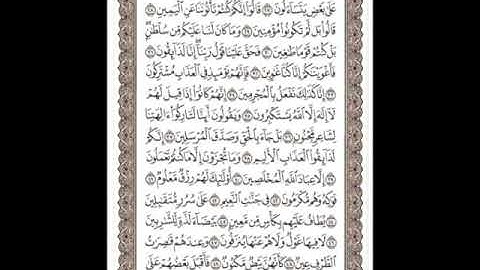 عَلَىٰ بَعْضٍ يَتَسَآءَلُونَ ٢٧ قَالُوٓا۟ إِنَّكُمْ كُنتُمْ تَأْتُونَنَا عَنِ ٱلْيَمِينِ ٢٨
قَالُوا۟ بَل لَّمْ تَكُونُوا۟ مُؤْمِنِينَ ٢٩ وَمَا كَانَ لَنَا عَلَيْكُم مِّن سُلْطَٰنٍۭ
بَلْ كُنتُمْ قَوْمًا طَٰغِينَ ٣٠ فَحَقَّ عَلَيْنَا قَوْلُ رَبِّنَآ إِنَّا لَذَآئِقُونَ ٣١
فَأَغْوَيْنَٰكُمْ إِنَّا كُنَّا غَٰوِينَ ٣٢ فَإِنَّهُمْ يَوْمَئِذٍ فِى ٱلْعَذَابِ مُشْتَرِكُونَ ٣٣
إِنَّا كَذَٰلِكَ نَفْعَلُ بِٱلْمُجْرِمِينَ ٣٤ إِنَّهُمْ كَانُوٓا۟ إِذَا قِيلَ لَهُمْ
لَآ إِلَٰهَ إِلَّا ٱللَّهُ يَسْتَكْبِرُونَ ٣٥ وَيَقُولُونَ أَئِنَّا لَتَارِكُوٓا۟ ءَالِهَتِنَا
لِشَاعِرٍ مَّجْنُونٍۭ ٣٦ بَلْ جَآءَ بِٱلْحَقِّ وَصَدَّقَ ٱلْمُرْسَلِينَ ٣٧ إِنَّكُمْ
لَذَآئِقُوا۟ ٱلْعَذَابِ ٱلْأَلِيمِ ٣٨ وَمَا تُجْزَوْنَ إِلَّا مَا كُنتُمْ تَعْمَلُونَ ٣٩
إِلَّا عِبَادَ ٱللَّهِ ٱلْمُخْلَصِينَ ٤٠ أُو۟لَٰٓئِكَ لَهُمْ رِزْقٌ مَّعْلُومٌ ٤١
فَوَٰكِهُ وَهُم مُّكْرَمُونَ ٤٢ فِى جَنَّٰتِ ٱلنَّعِيمِ ٤٣ عَلَىٰ سُرُرٍ مُّتَقَٰبِلِينَ ٤٤
يُطَافُ عَلَيْهِم بِكَأْسٍ مِّن مَّعِينٍۭ ٤٥ بَيْضَآءَ لَذَّةٍ لِّلشَّٰرِبِينَ ٤٦
لَا فِيهَا غَوْلٌ وَلَا هُمْ عَنْهَا يُنزَفُونَ ٤٧ وَعِندَهُمْ قَٰصِرَٰتُ
ٱلطَّرْفِ عِينٌ ٤٨ كَأَنَّهُنَّ بَيْضٌ مَّكْنُونٌ ٤٩ فَأَقْبَلَ بَعْضُهُمْ عَلَىٰ